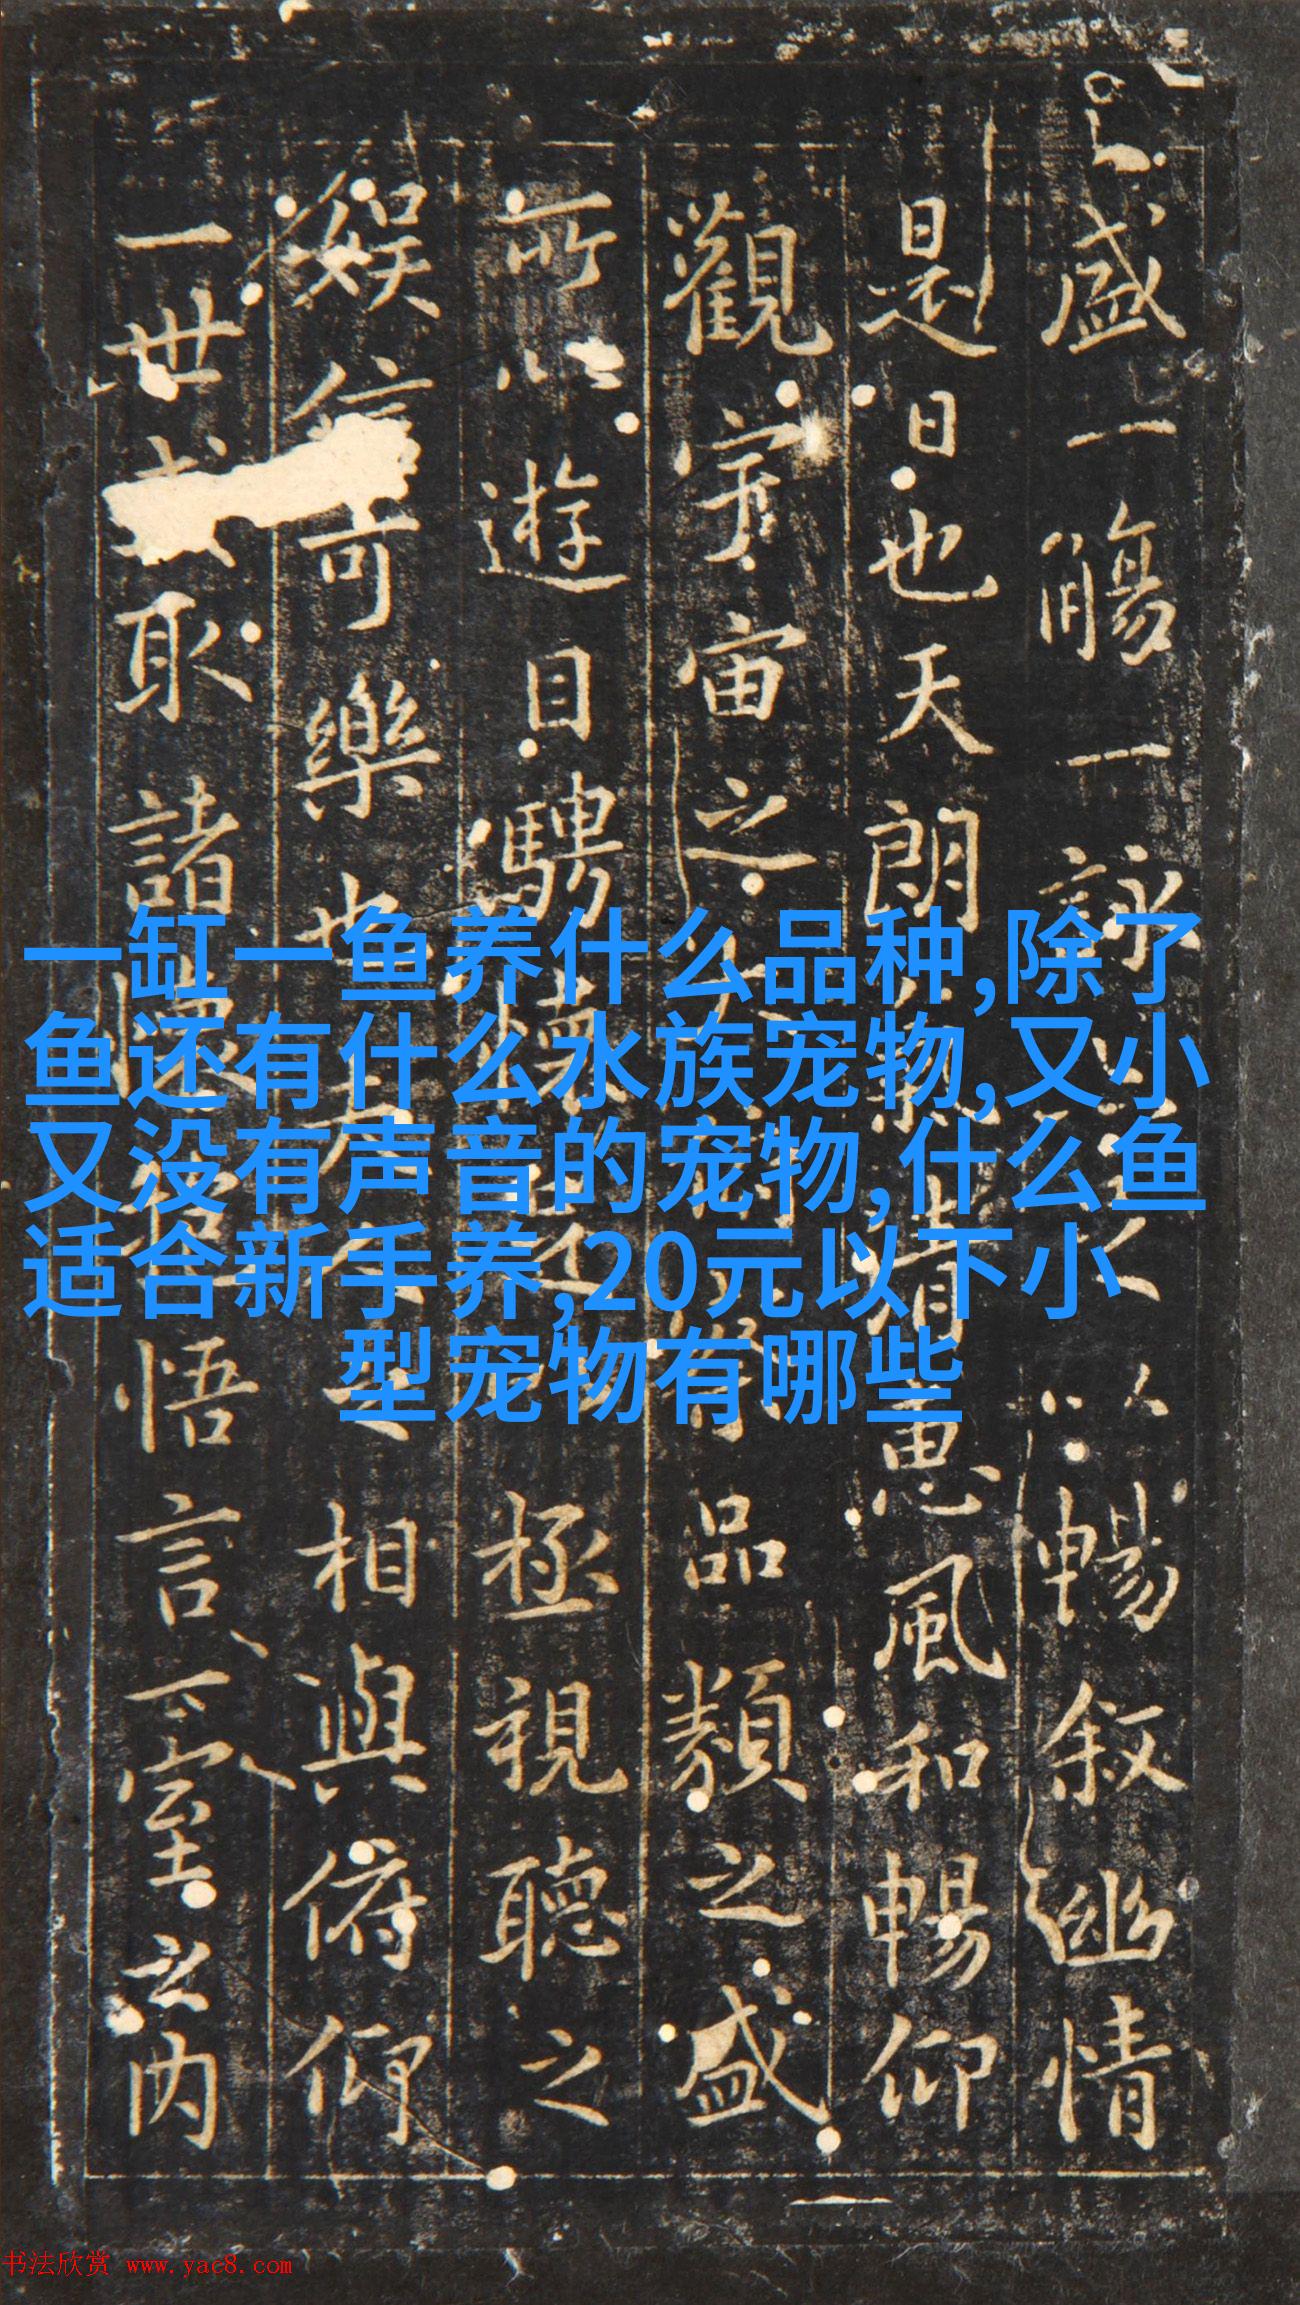 盛一觴一詠以暢叙幽情
是日也天朗清惠風和暢仰
觀宇宙之品類之盛
所以遊目騁懷極視聽之
娱信可樂也夫相與俯仰
一世取諸懷悟言一室之内
一缸一鱼养什么品种,除了
鱼还有什么水族宠物,又小
又没有声音的宠物,什么鱼
适合新手养,20元以下小
型宠物有哪些
书法欣赏 www.yac8.com